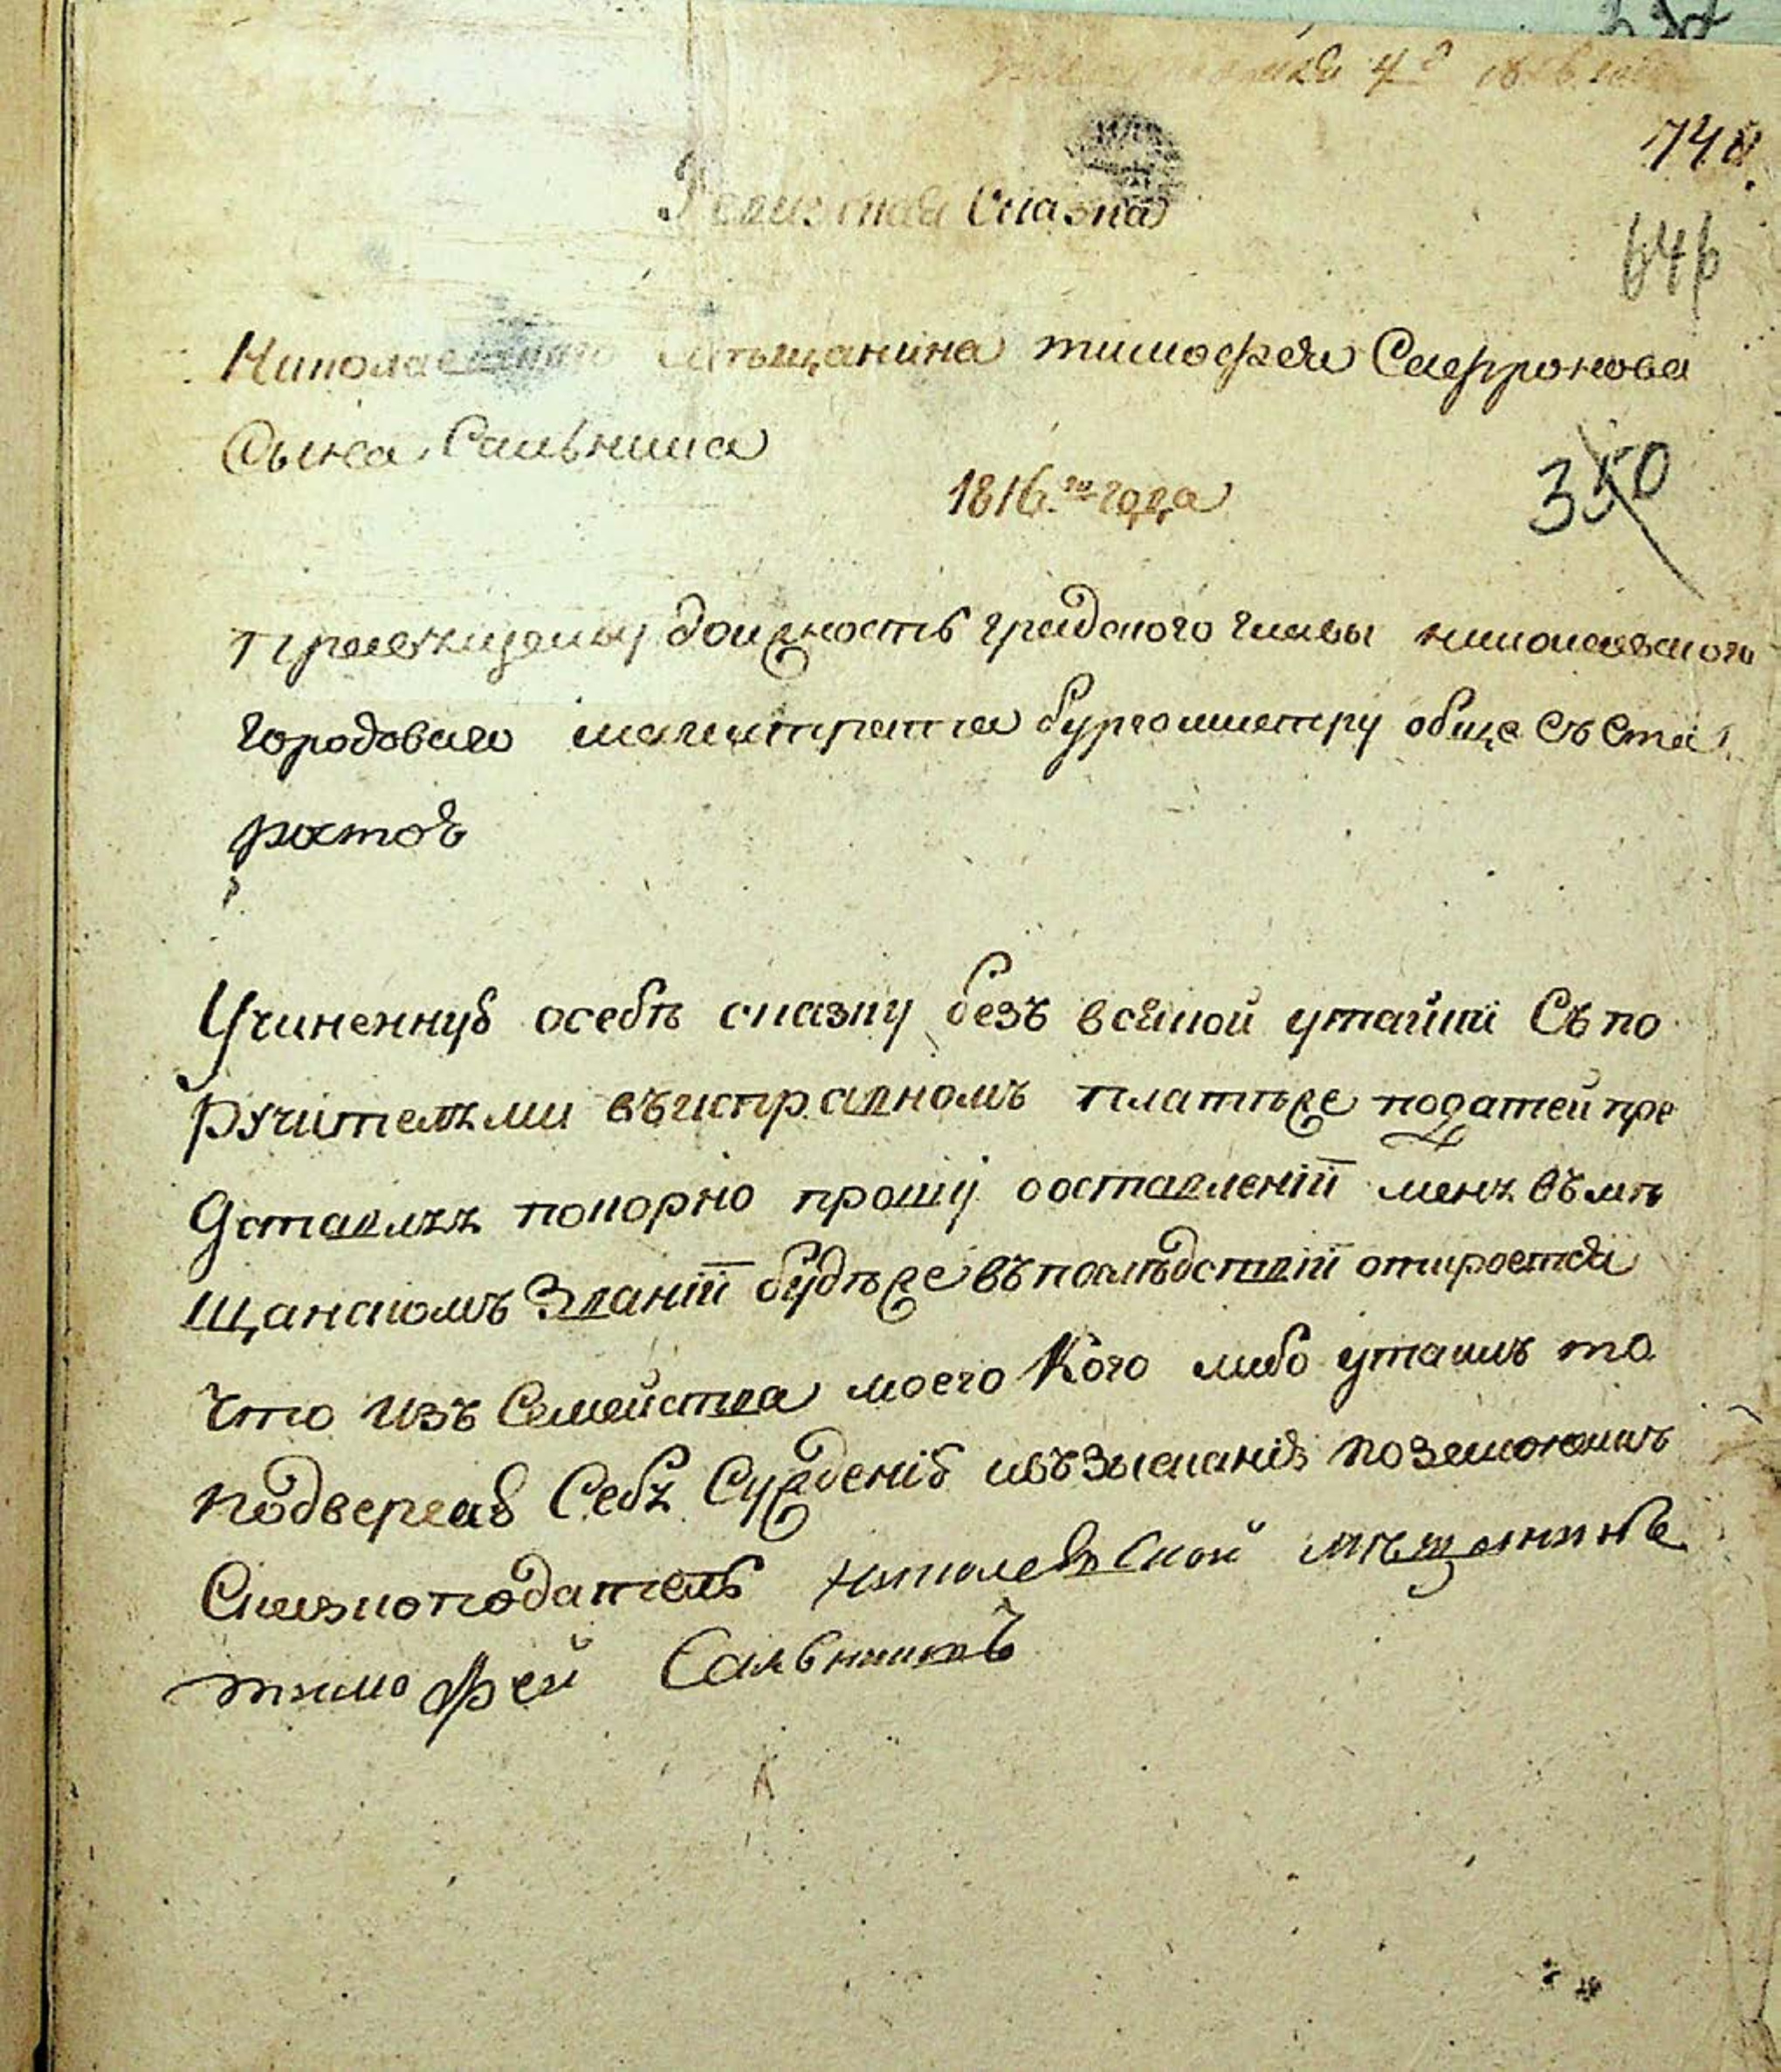 4º 1816 года
748.
646
Ревизская Сказка
Николаевскаго мѣщанина тимофея Сафронова
Сына Сальника
1816го года
350
Правящему должность градского главы николаевского
городоваго магистрата бургомистру обще съ Ста
ростою
Учиненную осебѣ сказку безъ всякой утайки Съ по
ручителями въисправномъ платѣже податей пре
дставляя покорно прошу обоставленіи меня въмѣ
щанскомъ Званіи будѣже въпослѣдствіи откроется
что изъ Семейства моего Кого либо утаилъ то
подвергаю Себя Сужденію ивъзысканію позаконамъ
Сказкоподатель николаевской мѣщанинъ
тимофей Сальникъ